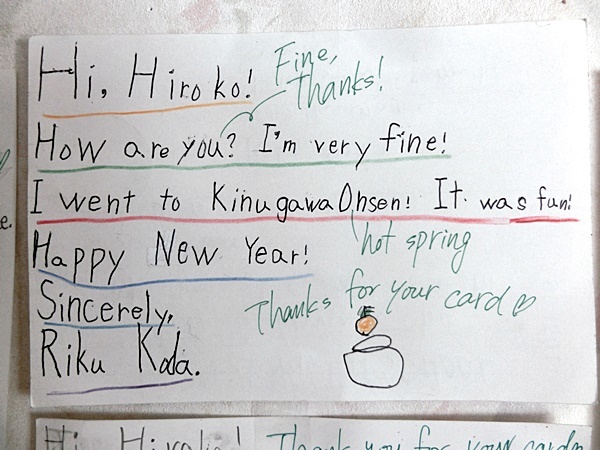 Hi, Hiroko!
Fine,
Thanks!
How are you? I'm very fine!
I went to Kinugawa Onsen! It was fun!
hot spring
Happy New Year!
Thanks for your card♡
Sincerely,
Riku Koda.
e.
Hi, Hiroko! Thank you for your card